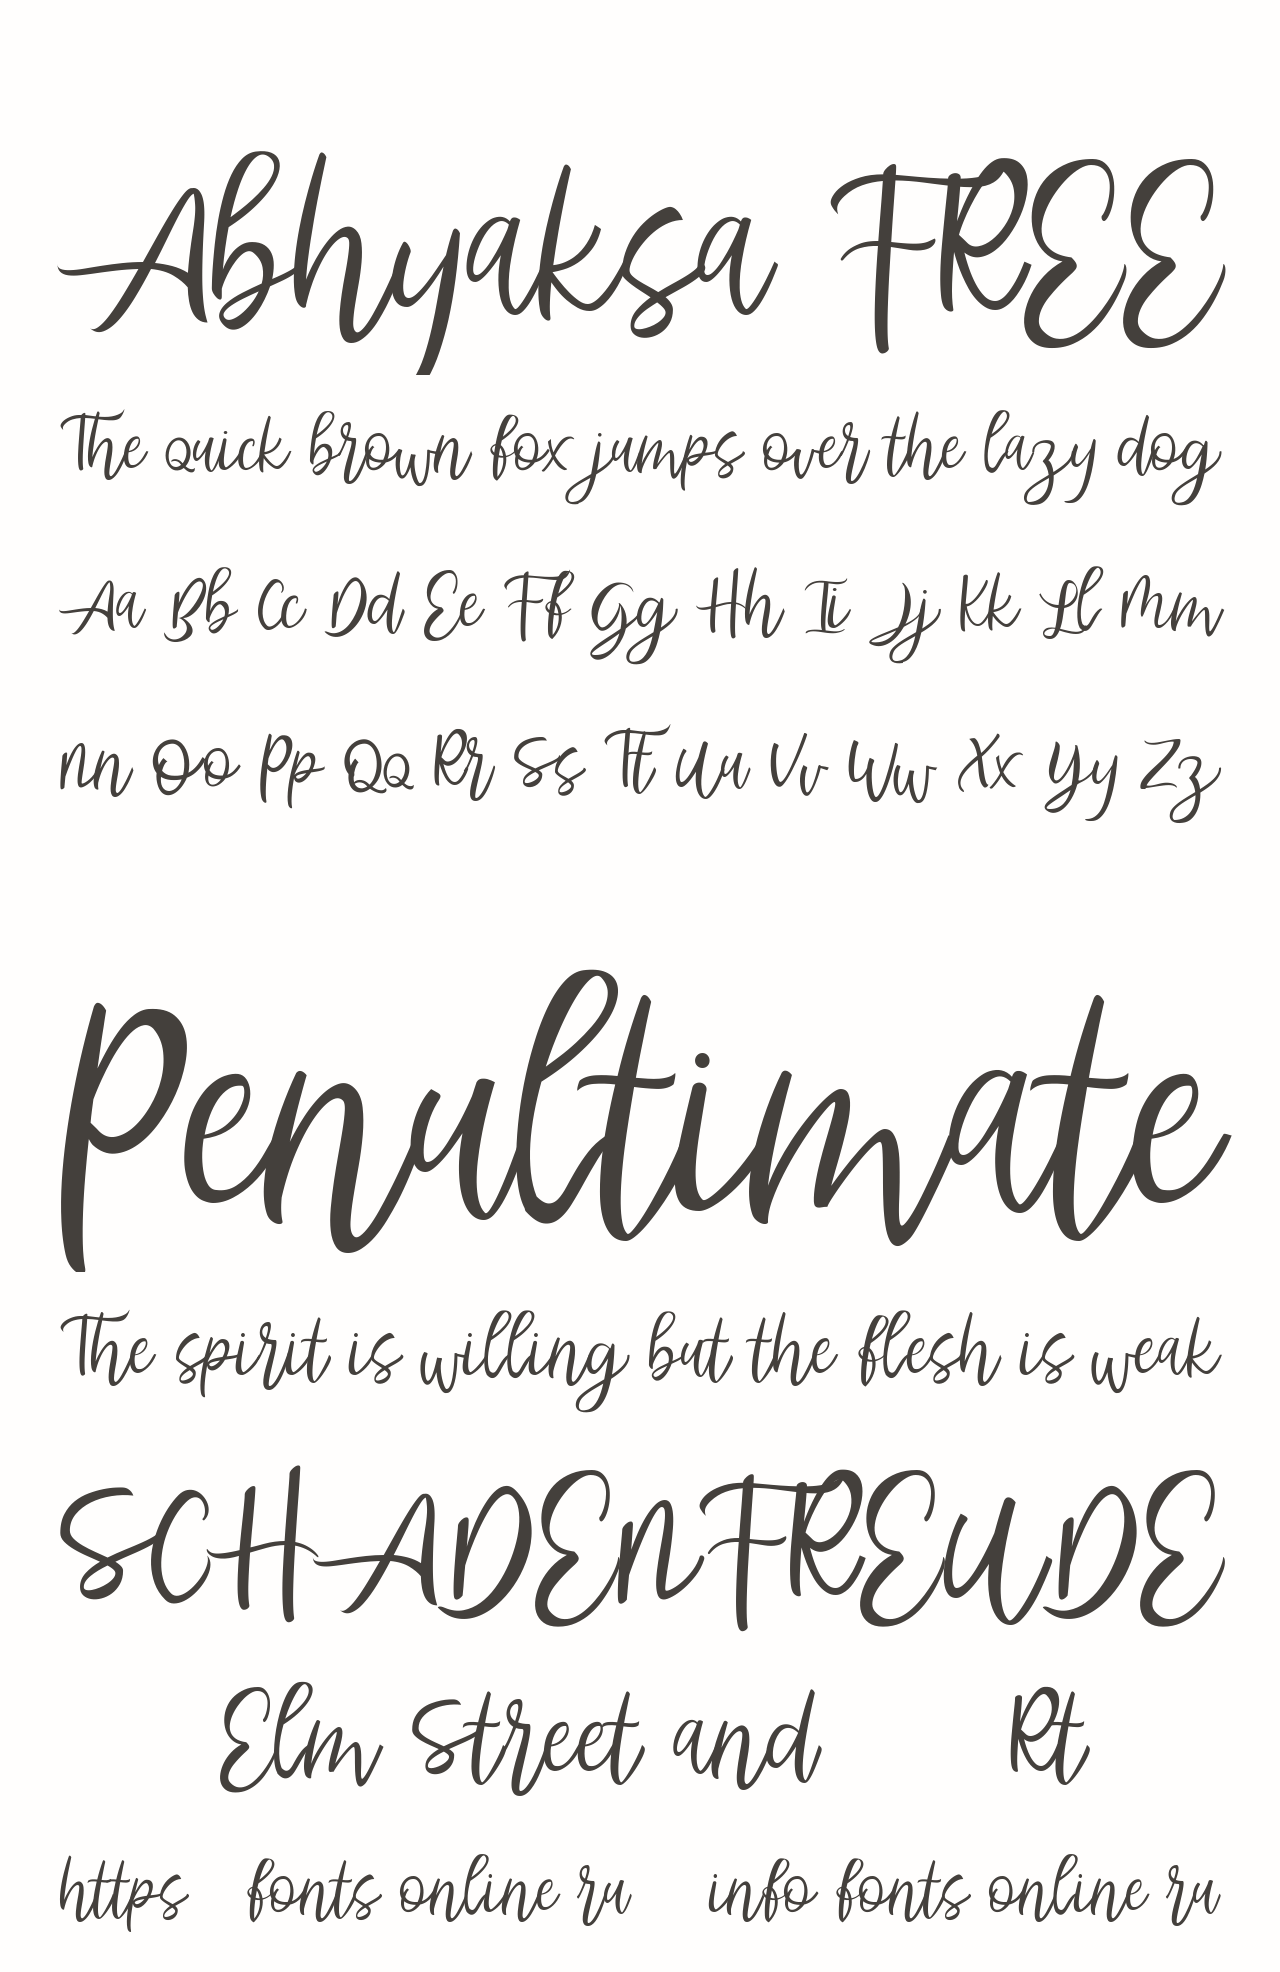 Abhyaksa FREE
The quick brown fox jumps over the lazy dog
Aa Bb Cc Dd Ee Ff Gg Hh Ii Jj Kk Ll Mm
Nn Oo Pp Qq Rr Ss Tt Uu Vv Ww Xx Yy Zz
Penultimate
The spirit is willing but the flesh is weak
SCHADENFREUDE
Elm Street and Rt
https fonts online ru info fonts online ru